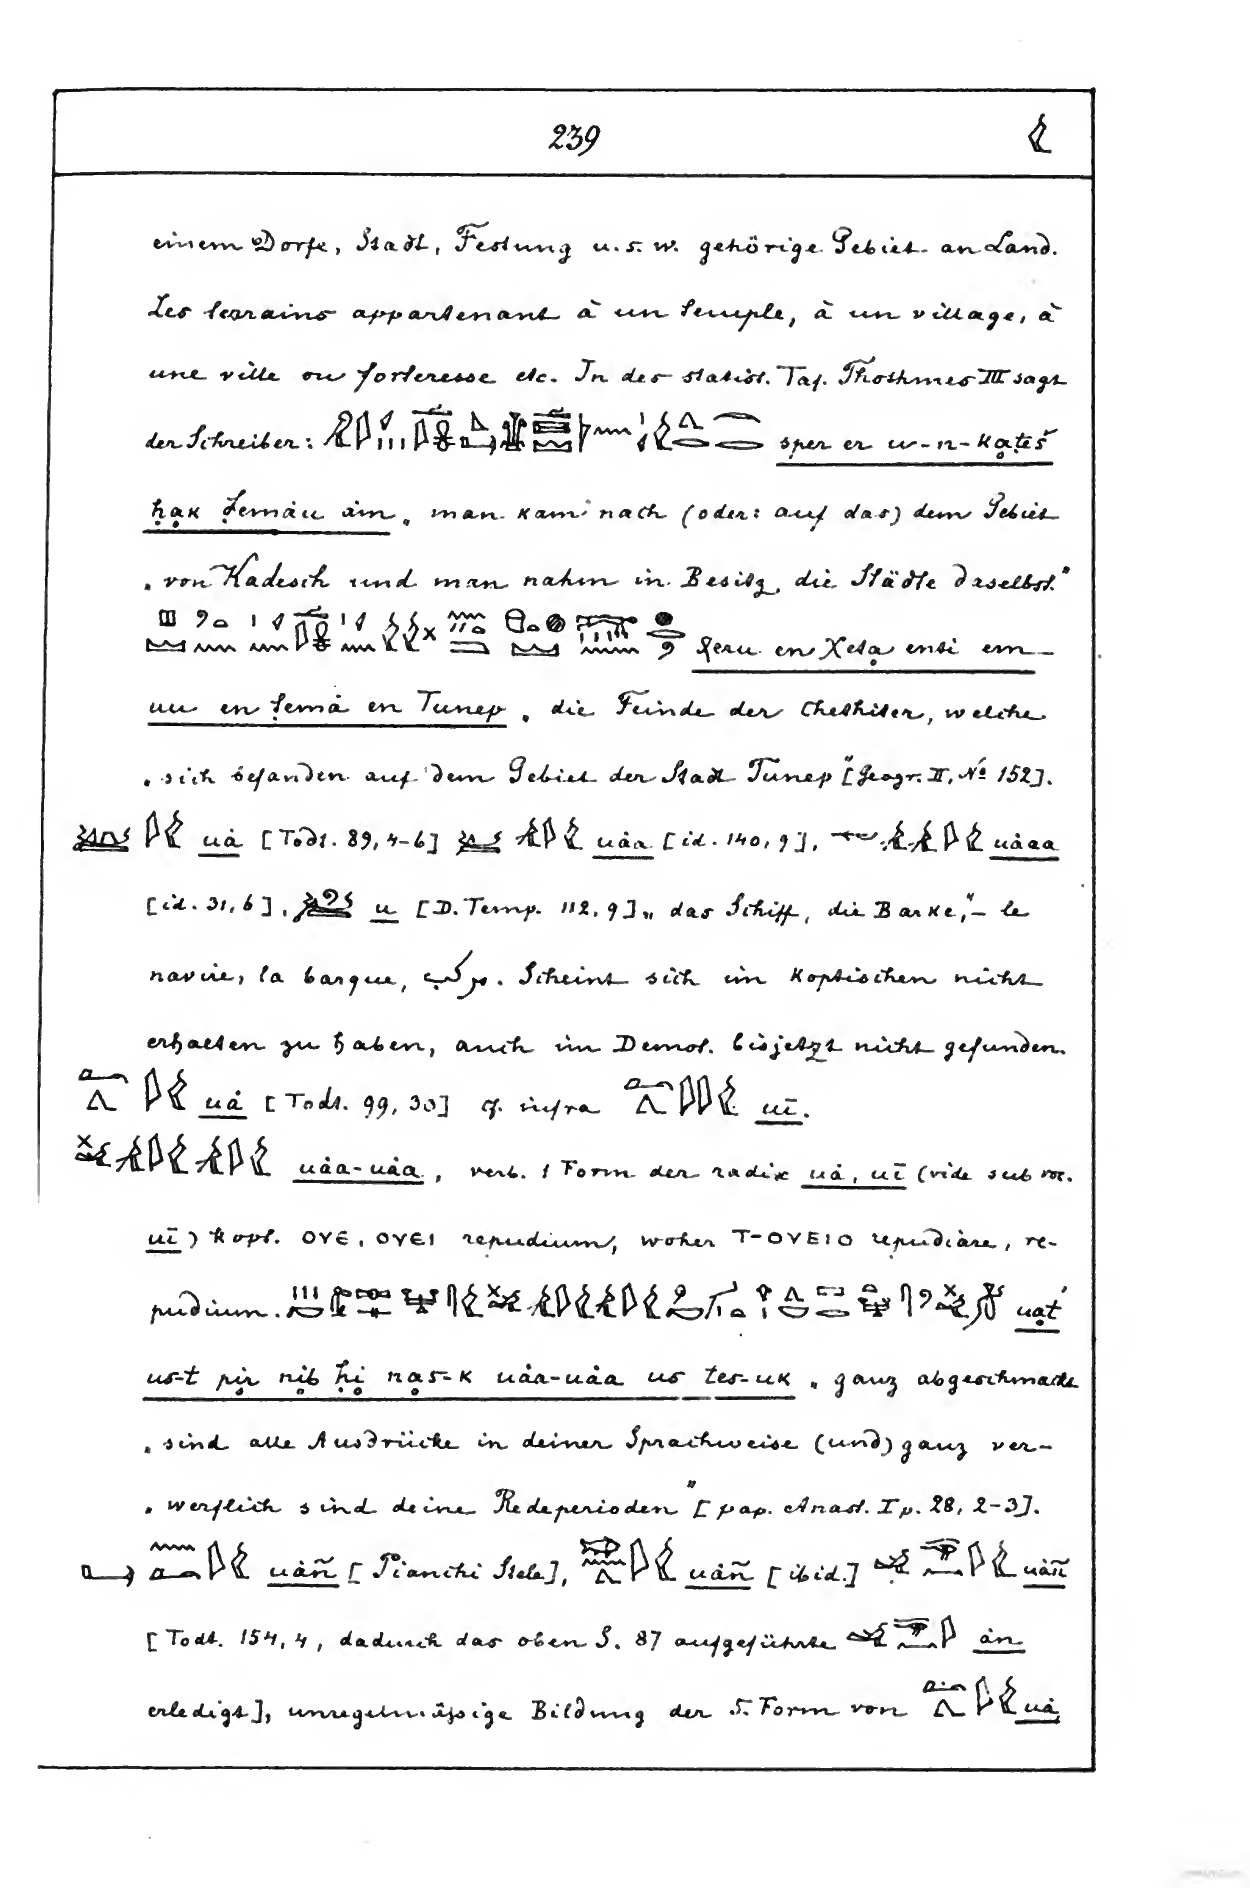 239
einem Dorfe, Stadt, Festung u. s. w. gehörige Gebiet an Land.
Les terrains appartenant à un temple, à un village, à
une ville ou forteresse etc. In der statist. Taf. Thothmes III sagt
der Schreiber: sper er u-n-Kạṭeš
ḥạk ṭemáu ám „ man kam nach (oder: auf das) dem Gebiet
„ von Kadesch und man nahm in Besitz die Städte daselbst."
χeru en Xeta enti em
uu en ṭemá en Tunep „ die Feinde der Chethiter, welche
„ sich befanden auf dem Gebiet der Stadt Tunep" [Geogr. II, No 152].
uȧ [Todt. 89, 4-6] uȧa [id. 140, 9], uȧaa
[id. 31, 6], u [D. Temp. 112, 9] „ das Schiff, die Barke," – le
navire, la barque, مركب. Scheint sich im Koptischen nicht
erhalten zu haben, auch im Demot. bisjetzt nicht gefunden.
uȧ [Todt. 99, 30] cf. infra uī.
uȧa-uȧa, verb. 1 Form der radix uȧ, uī (vide sub voc.
uī) kopt. ⲟⲩⲉ, ⲟⲩⲉⲓ repudium, woher ⲧ-ⲟⲩⲉⲓⲟ repudiare, re-
pudium. uạt'
us-t pịr nịb ḥị nạs-k uȧa-uȧa us tes-uk „ ganz abgeschmackt
„ sind alle Ausdrücke in deiner Sprachweise (und) ganz ver-
„ werflich sind deine Redeperioden" [pap. Anast. I p. 28, 2-3].
uȧñ [Pianchi Stele], uȧñ [ibid.] uȧñ
[Todt. 154, 4, dadurch das oben S. 87 aufgeführte ȧn
erledigt], unregelmäßige Bildung der 5. Form von uȧ